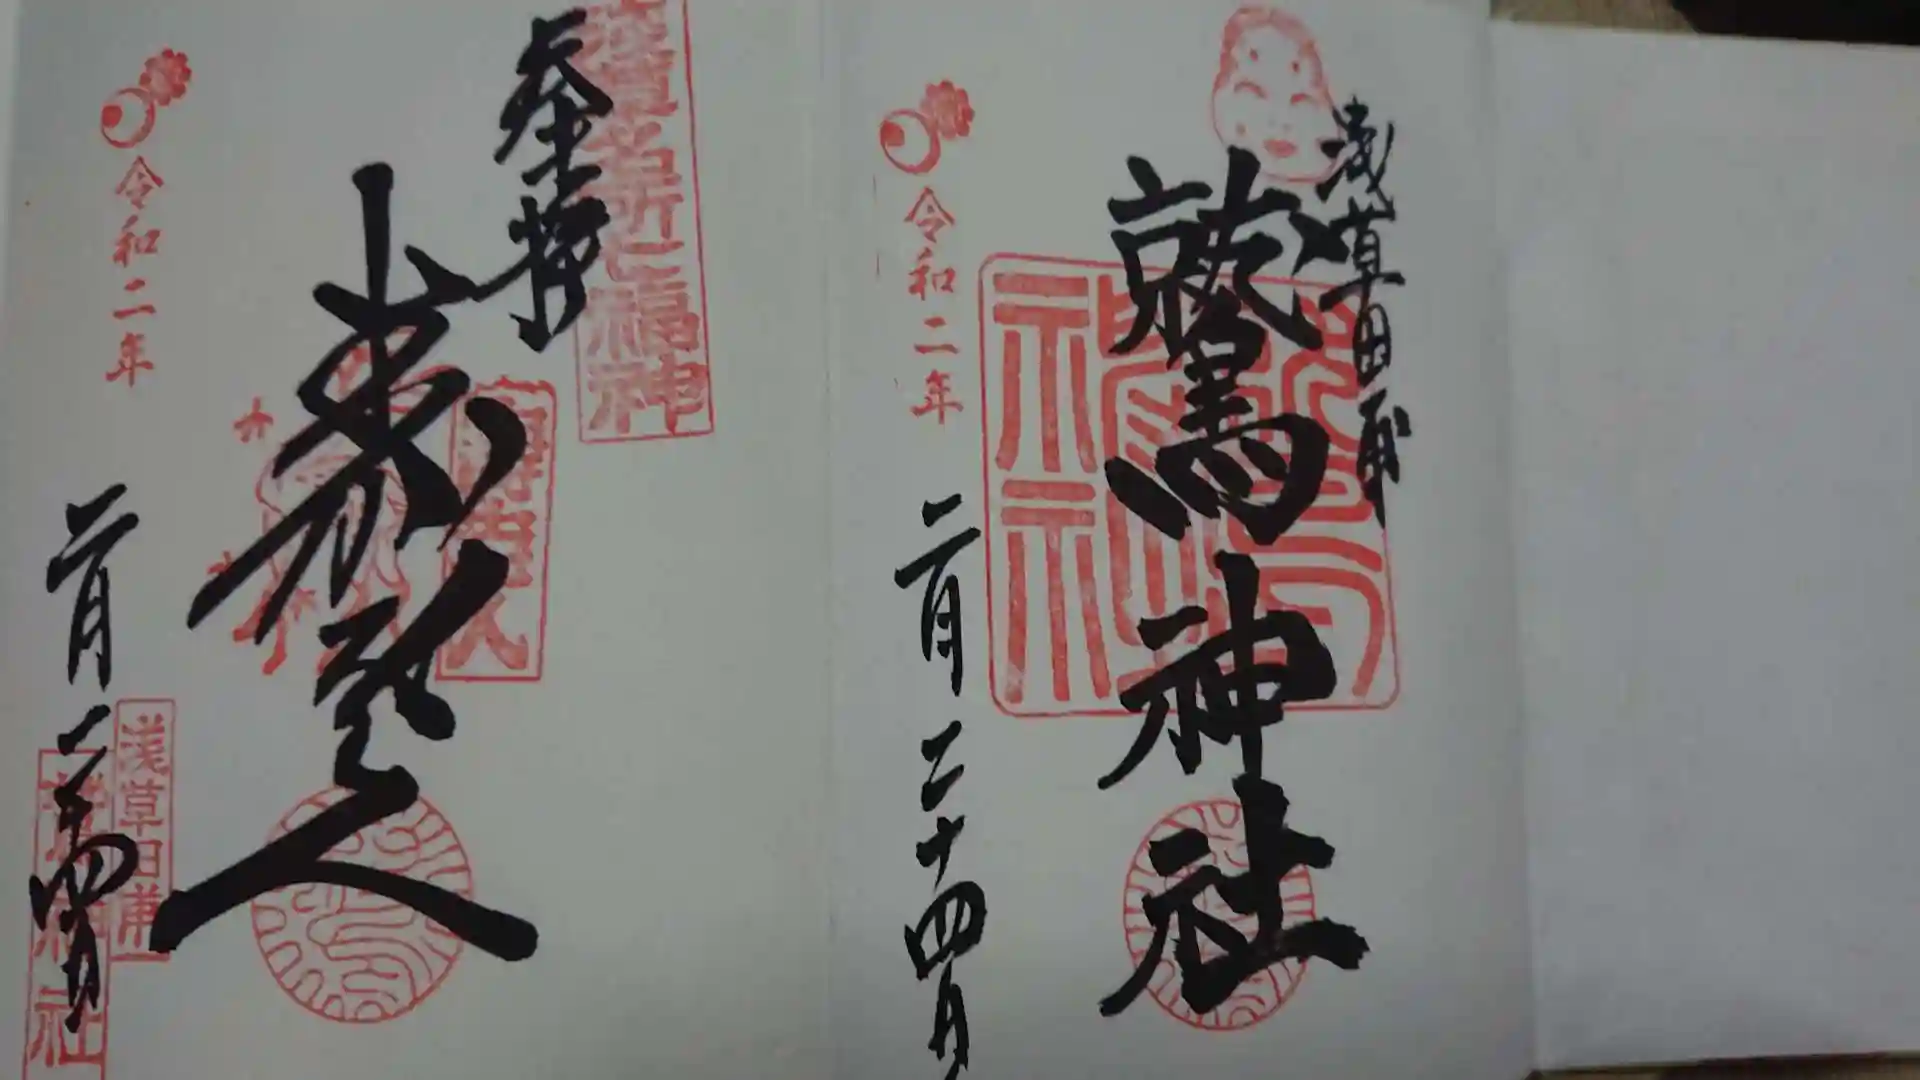 浅草田甫
鷲神社
令和二年
二月二十四日
奉拝
浅草名所七福神
壽老人
令和二年
二月二十四日
浅草田甫
鷲神社